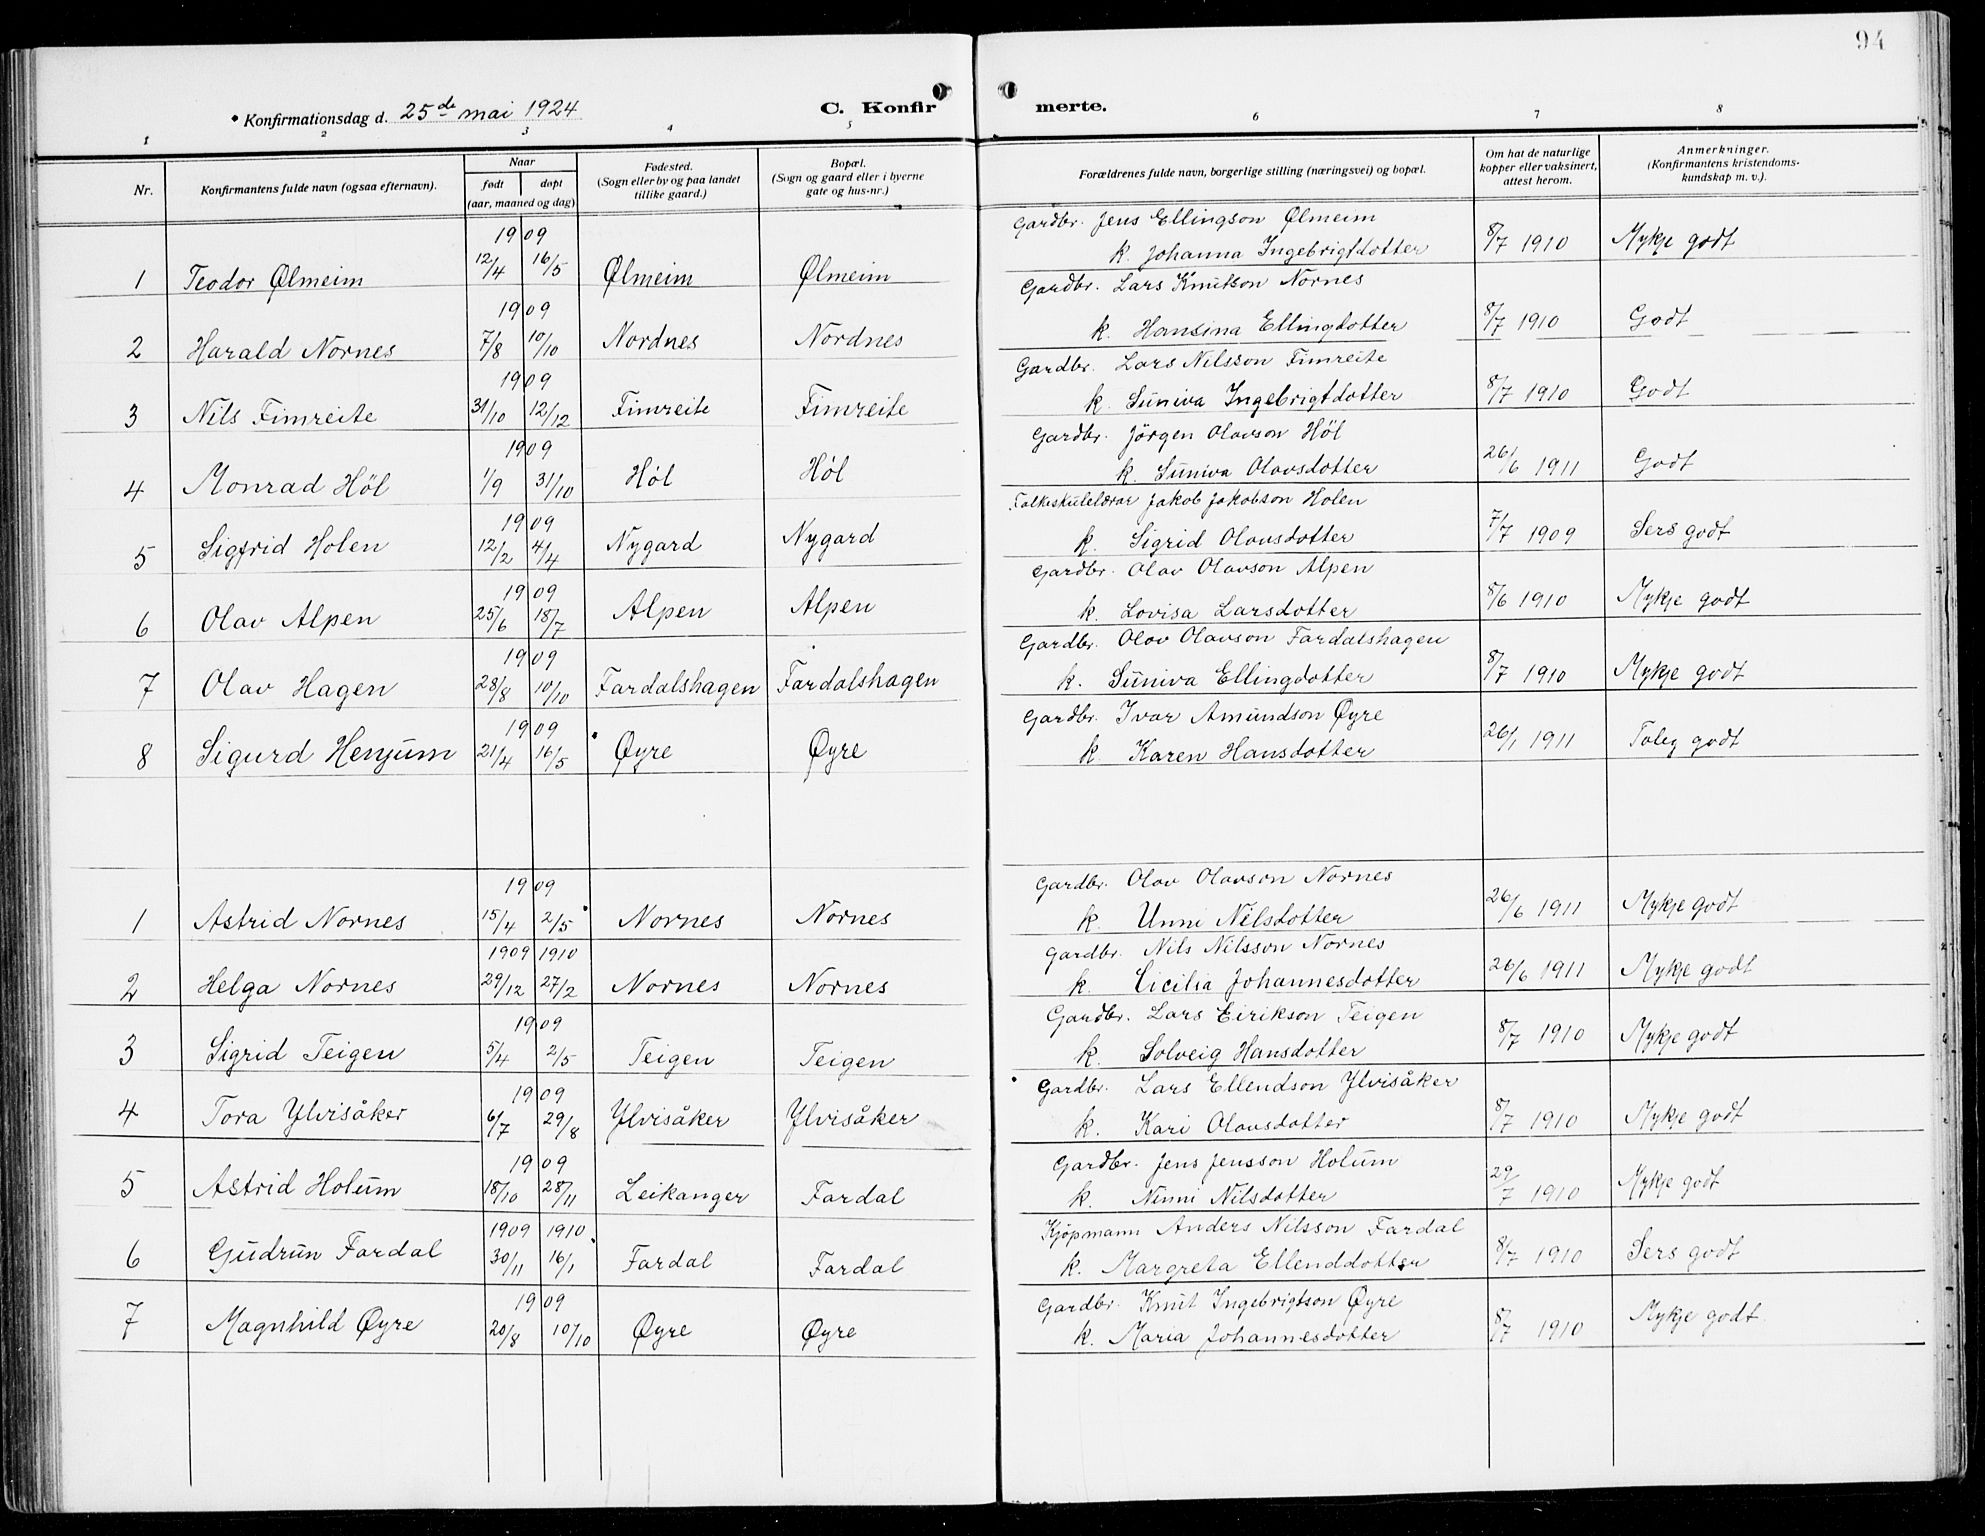 94
• Konfirmationsdag d. 25de mai 1924 C. Konfir merte.
1 2 3 4 5 6 7 8
Nr. Konfirmantens fulde navn (ogsaa efternavn). Naar født døpt (aar, maaned og dag) Fødested. (Sogn eller by og paa landet tillike gaard.) Bopæl. (Sogn og gaard eller i byerne gate og hus-nr.) Forældrenes fulde navn, borgerlige stilling (næringsvei) og bopæl. Om hat de naturlige kopper eller vaksinert, attest herom. Anmerkninger. (Konfirmantens kristendoms-kundskap m. v.).
1909 Gardbr. Jens Ellingson Ølmeim
1 Teodor Ølmeim 12/4 16/5 Ølmeim Ølmeim k. Johanna Ingebrigtdotter 8/7 1910 Mykje godt
1909 Gardbr. Lars Knutson Nornes
2 Harald Nornes 7/8 10/10 Nordnes Nordnes k. Hansina Ellingdotter 8/7 1910 Godt
1909 Gardbr. Lars Nilsson Fimreite
3 Nils Fimreite 31/10 12/12 Fimreite Fimreite k. Suniva Ingebrigtdotter 8/7 1910 Godt
1909 Gardbr. Jörgen Olavson Höl
4 Monrad Höl 1/9 31/10 Höl Höl k. Suniva Olavsdotter 26/6 1911 Godt
1909 Folkeskulelærar Jakob Jakobson Holen
5 Sigfrid Holen 12/2 4/4 Nygard Nygard k. Sigrid Olavsdotter 7/7 1909 Sers godt
1909 Gardbr. Olav Olavson Alpen
6 Olav Alpen 25/6 18/7 Alpen Alpen k. Lovisa Larsdotter 8/6 1910 Mykje godt
1909 Gardbr. Olav Olavson Fardalshagen
7 Olav Hagen 28/8 10/10 Fardalshagen Fardalshagen k. Suniva Ellingdotter 8/7 1910 Mykje godt
1909 Gardbr. Ivar Amundson Øyre
8 Sigurd Henjum 21/4 16/5 Øyre Øyre k. Karen Hansdotter 26/1 1911 Toleg godt
1909 Gardbr. Olav Olavson Nornes
1 Astrid Nornes 15/4 2/5 Nornes Nornes k. Unni Nilsdotter 26/6 1911 Mykje godt
1909 1910 Gardbr. Nils Nilsson Nornes
2 Helga Nornes 29/12 27/2 Nornes Nornes k. Cicilia Johannesdotter 26/6 1911 Mykje godt
1909 Gardbr. Lars Eirikson Teigen
3 Sigrid Teigen 5/4 2/5 Teigen Teigen k. Solveig Hansdotter 8/7 1910 Mykje godt
1909 Gardbr. Lars Ellendson Ylvisåker
4 Tora Ylvisåker 6/7 29/8 Ylvisåker Ylvisåker k. Kari Olavsdotter 8/7 1910 Mykje godt
1909 Gardbr. Jens Jensson Holum
5 Astrid Holum 18/10 28/11 Leikanger Fardal k. Ninni Nilsdotter 29/7 1910 Mykje godt
1909 1910 Kjöpmann Anders Nilsson Fardal
6 Gudrun Fardal 30/11 16/1 Fardal Fardal k. Margreta Ellenddotter 8/7 1910 Sers godt
1909 Gardbr. Knut Ingebrigtson Øyre
7 Magnhild Øyre 20/8 10/10 Øyre Øyre k. Maria Johannesdotter 8/7 1910 Mykje godt.